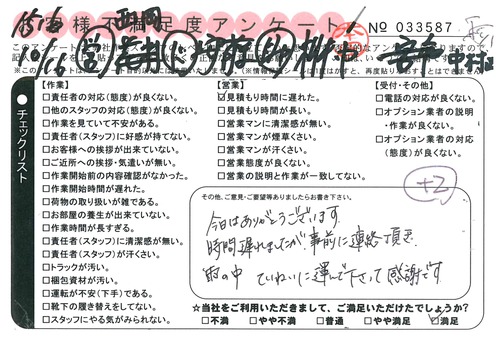 お客様不満足度アンケート
№ 033587
チェックリスト
【作業】
□責任者の対応(態度)が良くない。
□他のスタッフの対応(態度)が良くない。
□作業を見ていて不安がある。
□責任者(スタッフ)に好感が持てない。
□お客様への挨拶が出来ていない。
□ご近所への挨拶・気遣いが無い。
□作業開始前の内容確認がなかった。
□作業開始時間が遅れた。
□荷物の取り扱いが雑である。
□お部屋の養生が出来ていない。
□作業時間が長すぎる。
□責任者(スタッフ)に清潔感が無い。
□責任者(スタッフ)が汗くさい。
□トラックが汚い。
□梱包資材が汚い。
□運転が不安(下手)である。
□靴下の履き替えをしてない。
□スタッフにやる気がみられない。
【営業】
☑見積もり時間に遅れた。
□見積もり時間が長い。
□営業マンに清潔感が無い。
□営業マンが煙草くさい。
□営業マンが汗くさい。
□営業態度が良くない。
□営業の説明と作業が一致してない。
【受付・その他】
□電話の対応が良くない。
□オプション業者の説明
・作業が良くない。
□オプション業者の対応
(態度)が良くない。
+2
その他、ご意見・ご要望等ありましたらお書き下さい。
今日はありがとうございます。
時間遅れましたが、事前に連絡頂き、
雨の中 ていねいに運んで下さって感謝です
☆当社をご利用いただきまして、ご満足いただけたでしょうか?
□不満 □やや不満 □普通 □やや満足 ☑満足